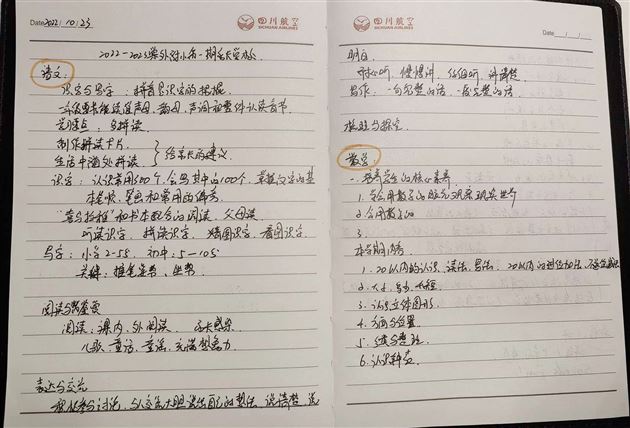 Date 2022/10/23
四川航空
SICHUAN AIRLINES
2022-2023学外附小省一期
语文:
识字与写字:拼音是识字的拐棍
一年级要求能读准声母、韵母、声调和整体认读音节
关键点:多拼读
制作拼读卡片
生活中随处拼读
给家长的建议
识字:认识常用300个,会写其中的100个,掌握汉字的基
本笔顺,笔画和常用的偏旁
和书本配合的阅读
识字、猜图识字、看图识字
写字:小学2-5B,初中:5-105
关键:握笔姿势、坐势
阅读与
阅读:课内、外阅读
儿歌、童话、童谣,充满想象力
表达与交流
积极参与讨论,与人交流大胆说出自己的想法,说清楚,说
四川航空
SICHUAN AIRLINES
Date / /
明白
耐心听,慢慢讲,仔细听,讲清楚
写作:一句完整的话,一段完整的话
梳理与探究
数学:
一、培养学生的核心素养
1. 学会用数学的眼光观察现实世界
2. 会用数学的
3.
本学期内容
1. 20以内的认识、读法、写法、20以内的进位加法、不退位减法
2. 大小、多少、
3. 认识立体图形
4. 方向与位置
5. 分类与整理
6. 认识钟表